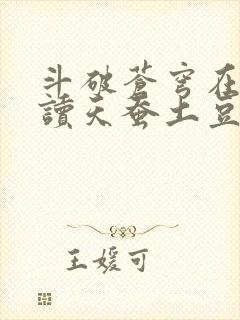 斗破苍穹在
读天蚕土豆
王媛可